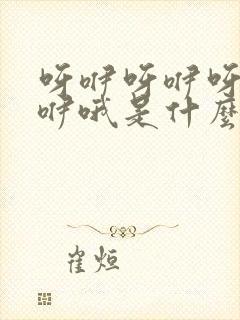 呀咿呀咿呀
咿哦是什麼
崔烜